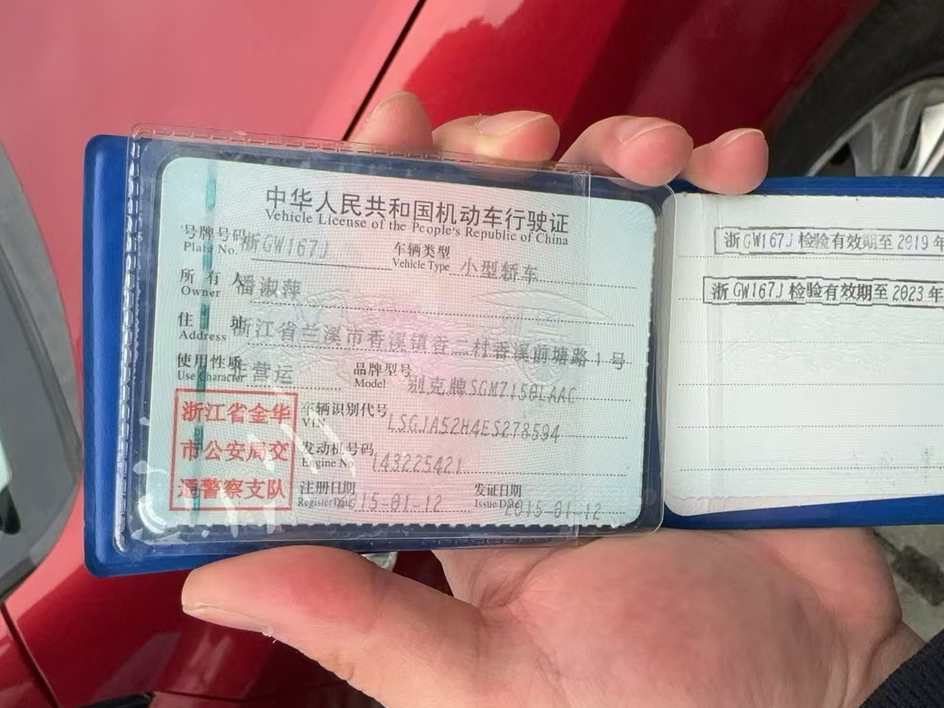 中华人民共和国机动车行驶证
Vehicle License of the People's Republic of China
号牌号码 浙GW167J 车辆类型 小型轿车
Plate No. Vehicle Type
所有人 潘淑萍
Owner
住址 浙江省兰溪市香溪镇香二村香溪前塘路1号
Address
使用性质 非营运 品牌型号 别克牌SGM7150LAAC
Use Character Model
浙江省金华
市公安局交
通警察支队
车辆识别代号 LSGJA52H4ES278594
VIN
发动机号码 143225421
Engine No.
注册日期 2015-01-12 发证日期 2015-01-12
Register Date Issue Date
浙GW167J检验有效期至2019年
浙GW167J检验有效期至2023年